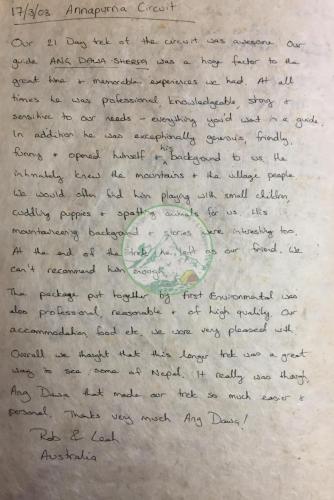 17/3/03 Annapurna Circuit
Our 21 Day trek of the circuit was awesome. Our
guide ANG DAWA SHERPA was a huge factor to the
great time & memorable experiences we had. At all
times he was professional, knowledgeable, strong &
sensitive to our needs - everything you'd want in a guide.
In addition he was exceptionally generous, friendly,
funny & opened himself & his background to us. He
intimately knew the mountains & the village people.
We would often find him playing with small children,
cuddling puppies & spotting animals for us. His
mountaineering background & stories were interesting too.
At the end of the trek he left as our friend. We
can't recommend him enough.
The package put together by First Environmental was
also professional, reasonable & of high quality. Our
accommodation, food etc we were very pleased with.
Overall we thought that this longer trek was a great
way to see some of Nepal. It really was though
Ang Dawa that made our trek so much easier &
personal. Thanks very much Ang Dawa!
Rob & Leah
Australia